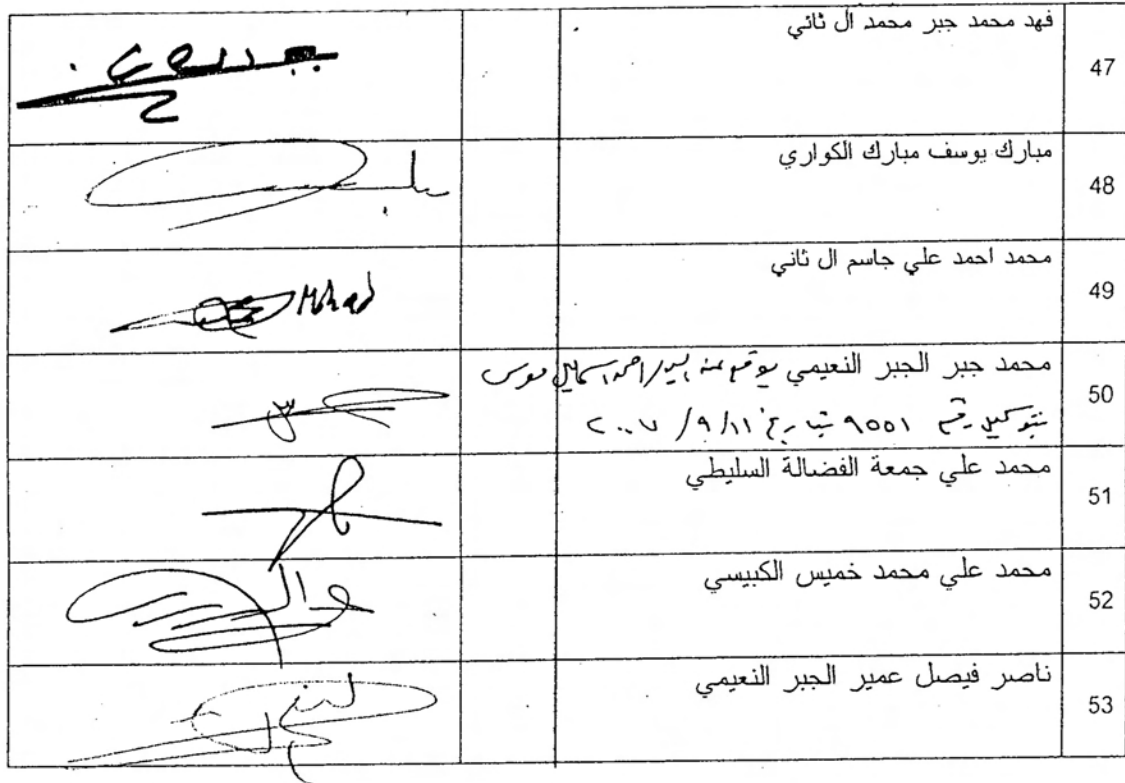 47 فهد محمد جبر محمد ال ثاني
48 مبارك يوسف مبارك الكواري
49 محمد احمد علي جاسم ال ثاني
Mohad
50 محمد جبر الجبر النعيمي يوقع عنه السيد/احمد اسماعيل موسى
بتوكيل رقم ٩٥٥١ بتاريخ ١١/٩/٢٠٠٧
51 محمد علي جمعة الفضالة السليطي
52 محمد علي محمد خميس الكبيسي
53 ناصر فيصل عمير الجبر النعيمي